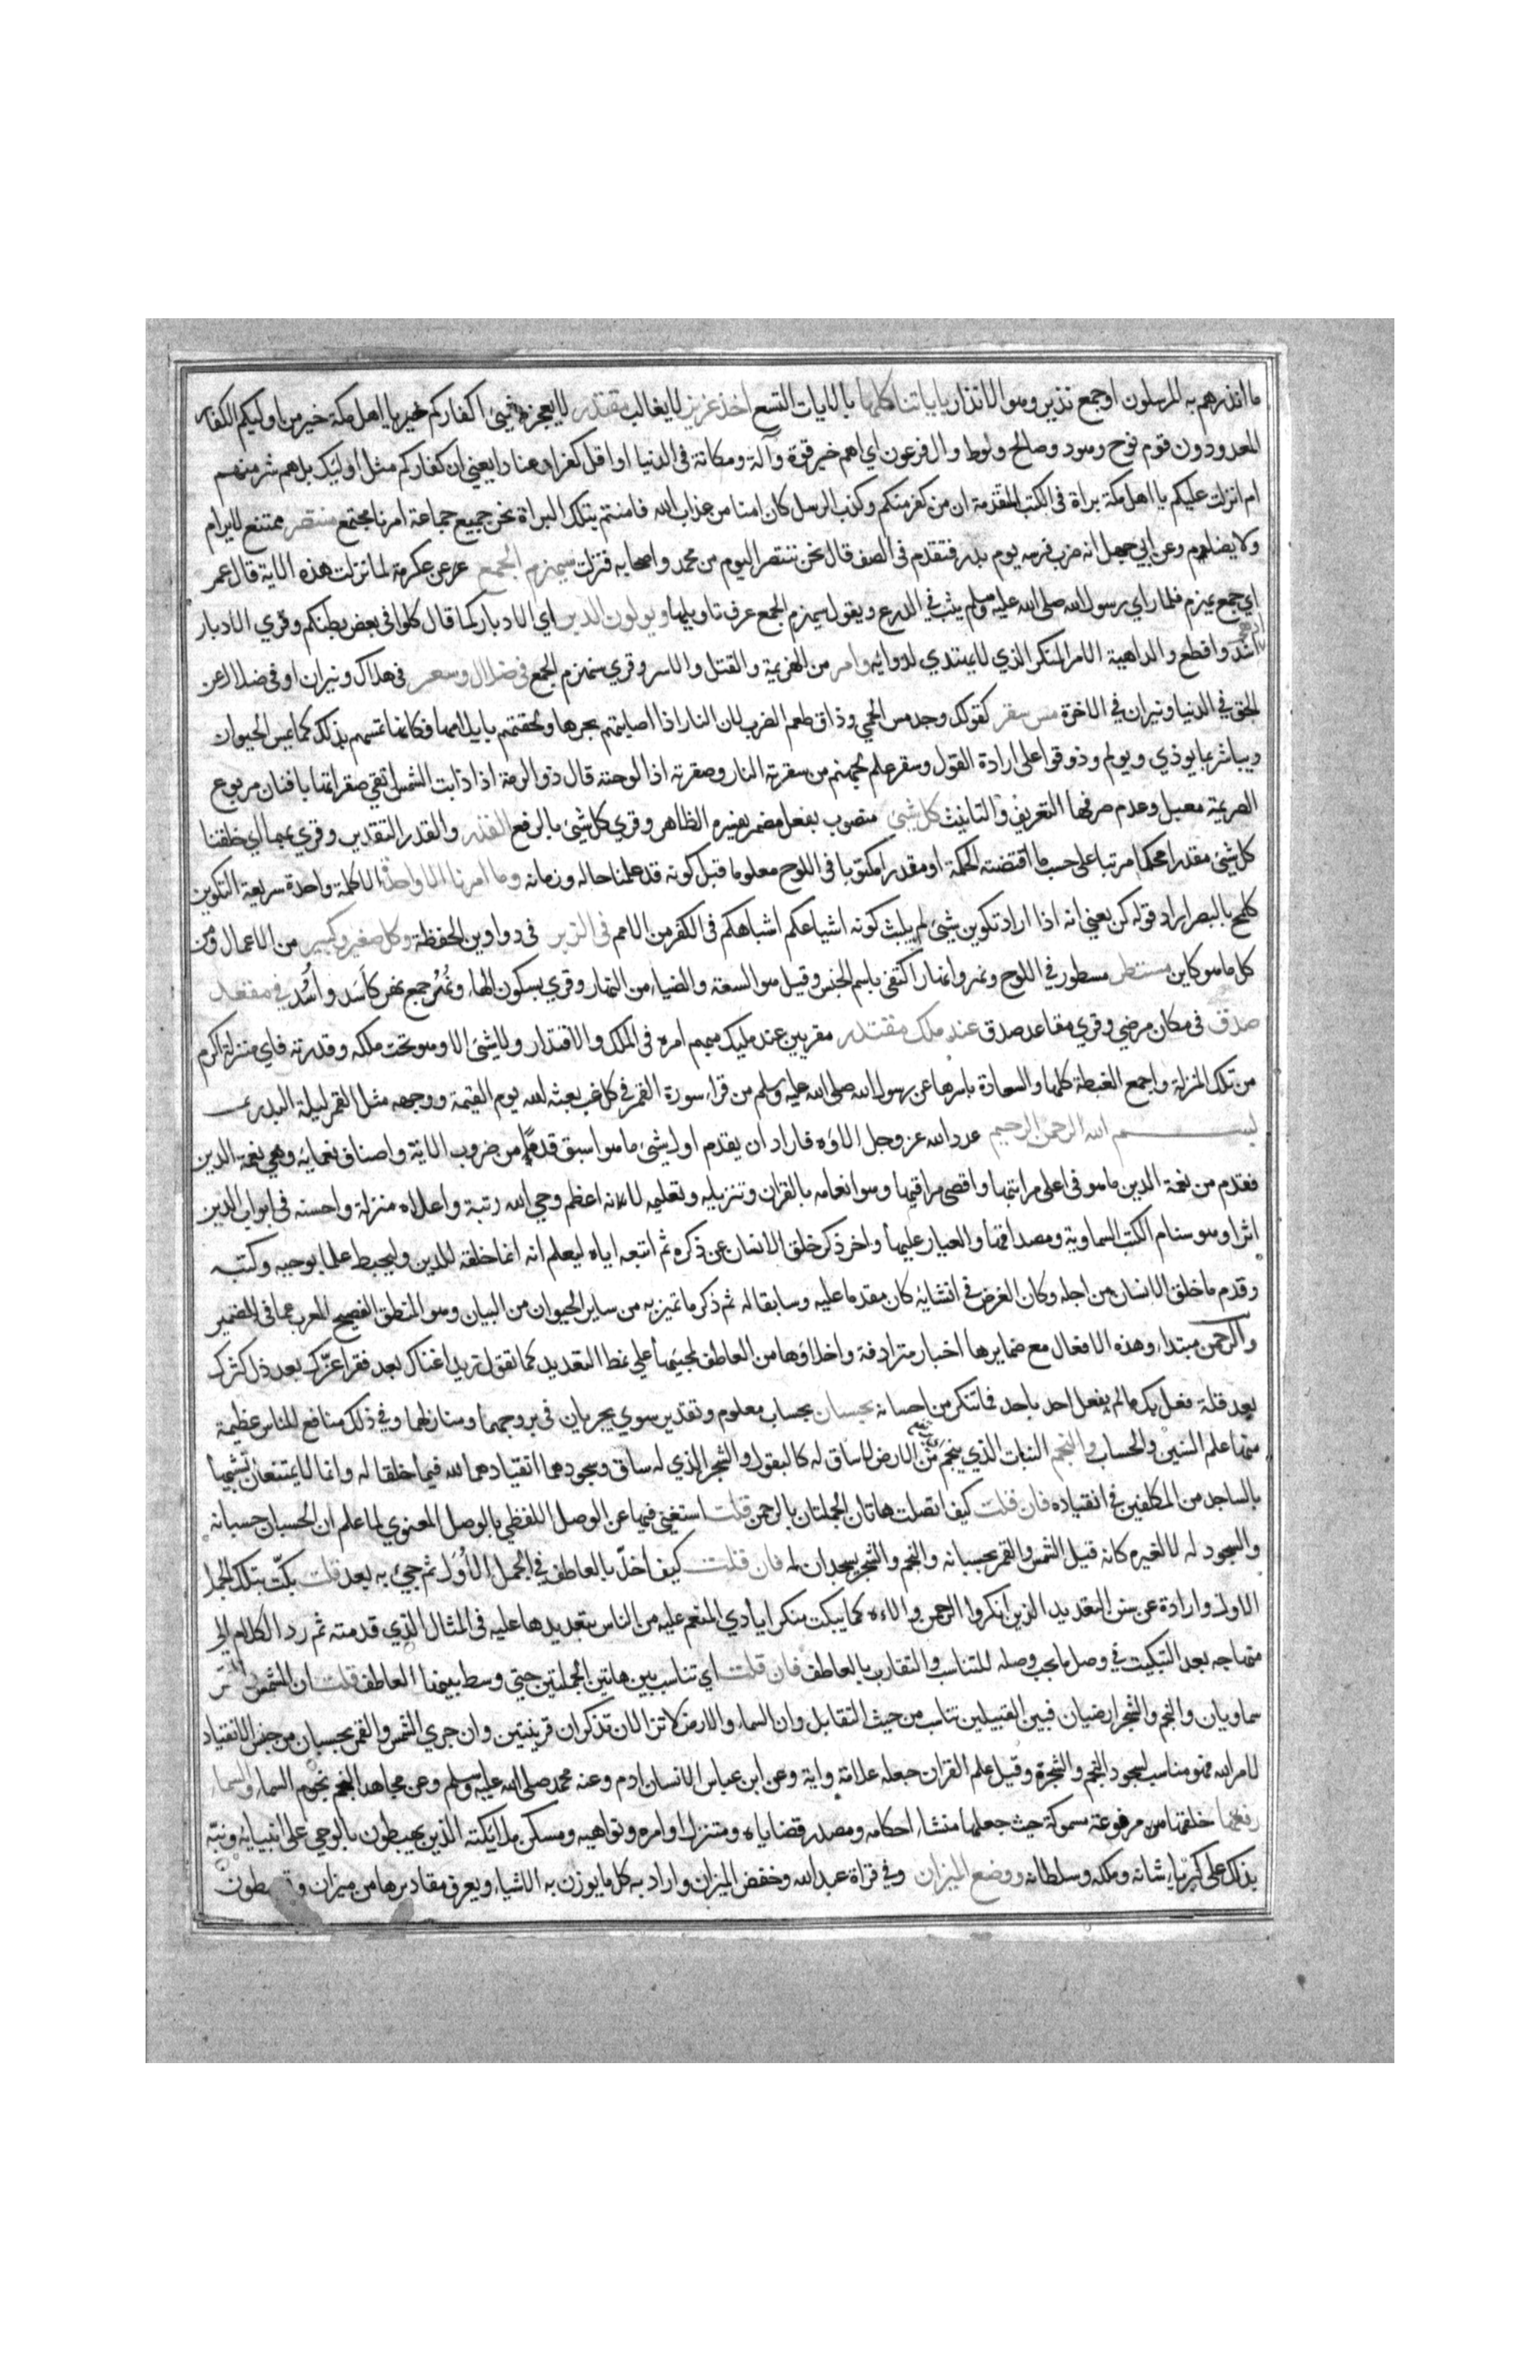 ما انذرهم به المرسلون او جمع نذير وهو الانذار باياتنا كلها بالايات التسع اخذ عزيز لا يغالب مقتدر لا يعجزه شيئ اكفاركم خير يا اهل مكة خير من اوليكم الكفار
المعدودون قوم نوح وهود وصالح ولوط وال فرعون اي اهم خير قوة وآلة ومكانة في الدنيا او اقل كفرا وعنادا يعني ان كفاركم مثل اوليك بل هم شر منهم
ام انزلت عليكم يا اهل مكة براة في الكتب المتقدمة ان من كفر منكم وكذب الرسل كان امنا من عذاب الله فامنتم بتلك البراة نحن جميع جماعة امرنا مجتمع منتصر ممتنع لا يرام
ولا يضام وعن ابي جهل انه ضرب فرسه يوم بدر فتقدم في الصف قال نحن ننتصر اليوم من محمد واصحابه فنزلت سيهزم الجمع عن عكرمة لما نزلت هذه الاية قال عمر
اي جمع يهزم فلما راي رسول الله صلى الله عليه وسلم يثب في الدرع ويقول سيهزم الجمع عرف تاويلها ويولون الدبر اي الادبار كما قال كلوا في بعض بطنكم وقري الادبار
اشد وافظع والداهية الامر المنكر الذي لا يهتدي لدوائه وامر من الهزيمة والقتل والاسر وقري سنهزم الجمع في ضلال وسعر في هلاك ونيران او في ضلال عن
الحق في الدنيا ونيران في الاخرة مس سقر كقولك وجد مس الحمي وذاق طعم الضرب لان النار اذا اصابتهم بحرها ولحقتهم بايلامها فكانها تمسهم بذلك كما يمس الحيوان
ويباشر بما يوذي ويولم وذوقوا على ارادة القول وسقر علم لجهنم من سقرته النار وصقرته اذا لوحته قال ذو الرمة اذا ذابت الشمس اتقي صقراتها بافنان مربوع
الصريمة معبل وعدم صرفها التعريف والتانيث كل شيئ منصوب بفعل مضمر يفسره الظاهر وقري كل شيئ بالرفع القدر والقدر التقدير وقري بهما اي خلقنا
كل شيئ مقدرا محكما مرتبا على حسب ما اقتضته الحكمة او مقدرا مكتوبا في اللوح معلوما قبل كونه قد علمنا حاله وزمانه وما امرنا الا واحدة الا كلمة واحدة سريعة التكوين
كلمح بالبصر اراد قوله كن يعني انه اذا اراد تكوين شيئ لم يلبث كونه اشياعكم اشباهكم في الكفر من الامم في الزبر في دواوين الحفظة وكل صغير وكبير من الاعمال ومن
كل ما هو كاين مستطر مسطور في اللوح ونهر وانهار اكتفي باسم الجنس وقيل هو السعة والضياء من النهار وقري بسكون الهاء ونُهُر جمع نهر كاَسَد واُسُد في مقعد
صدق في مكان مرضي وقري مقاعد صدق عند مليك مقتدر مقربين عند مليك مبهم امره في الملك والاقتدار ولا شيئ الا وهو تحت ملكه وقدرته فاي منزلة اكرم
من تلك المنزلة واجمع الغبطة كلها والسعادة باسرها عن رسول الله صلى الله عليه وسلم من قراء سورة القمر في كل غب بعثه الله يوم القيمة ووجهه مثل القمر ليلة البدر
بسم الله الرحمن الرحيم عدد الله عز وجل الاؤه فاراد ان يقدم اول شيئ ما هو اسبق قدما من ضروب الائه واصناف نعمايه وهي نعمة الدين
فقدم من نعمة الدين ما هو في اعلى مراتبها واقصي مراقيها وهو انعامه بالقران وتنزيله وتعليمه لانه اعظم وحي الله رتبة واعلاه منزلة واحسنه في ابواب الدين
اثرا وهو سنام الكتب السماوية ومصداقها والعيار عليها واخر ذكر خلق الانسان عن ذكره ثم اتبعه اياه ليعلم انه انما خلقه للدين وليحيط علما بوحيه وكتبه
وقدم ما خلق الانسان من اجله وكان الغرض في انشائه كان مقدما عليه وسابقا له ثم ذكر ما تميز به من ساير الحيوان من البيان وهو المنطق الفصيح المعرب عما في الضمير
والرحمن مبتداء وهذه الافعال مع ضمايرها اخبار مترادفة واخلاؤها من العاطف لمجيئها علي نمط التعديد كما تقول زيد اغناك بعد فقر اعزك بعد ذل كثرك
بعد قلة فعل بك ما لم يفعل احد باحد فما تنكر من احسانه بحسبان بحساب معلوم وتقدير سوي يجريان في بروجهما ومنازلهما وفي ذلك منافع للناس عظيمة
منها علم السنين والحساب والنجم النبات الذي ينجم من الارض لا ساق له كالبقول والشجر الذي له ساق وسجودهما انقيادهما لله فيما خلقا له وانما لا يمتنعان تشبيها
بالساجد من المكلفين في انقياده فان قلت كيف اتصلت هاتان الجملتان بالرحمن قلت استغني فيهما عن الوصل اللفظي بالوصل المعنوي لما علم ان الحسبان حسبانه
والسجود له لا لغيره كانه قيل الشمس والقمر بحسبانه والنجم والشجر يسجدان له فان قلت كيف اخلّ بالعاطف في الجمل الاُوَل ثم جيئ به بعد قلت بكّت بتلك الجمل
الاول وارادة عن سنن التعديد الذين انكروا الرحمن والاءه كما يبكت منكر ايادي المنعم عليه من الناس بتعديدها عليه في المثال الذي قدمته ثم رد الكلام الي
منهاجه بعد التبكيت في وصل ما يجب وصله للتناسب والتقارب بالعاطف فان قلت اي تناسب بين هاتين الجملتين حتي وسط بينهما العاطف قلت ان الشمس والقمر
سماويان والنجم والشجر ارضيان فبين القبيلين تناسب من حيث التقابل وان السماء والارض لا تزالان تذكران قرينتين وان جري الشمس والقمر بحسبان من جنس الانقياد
لامر الله فهو مناسب لسجود النجم والشجرة وقيل علم القران جعله علامة واية وعن ابن عباس الانسان ادم وعنه محمد صلى الله عليه وسلم وعن مجاهد النجم نجوم السماء والسماء
رفعها خلقها من مرفوعة مسموكة حيث جعلها منشاء احكامه ومصدر قضاياه ومتنزل اوامره ونواهيه ومسكن ملايكته الذين يهبطون بالوحي على انبيايه ونبّه
بذلك على كبرياء شانه وملكه وسلطانه ووضع الميزان وفي قراة عبد الله وخفض الميزان واراد به كل ما يوزن به الاشياء ويعرف مقاديرها من ميزان